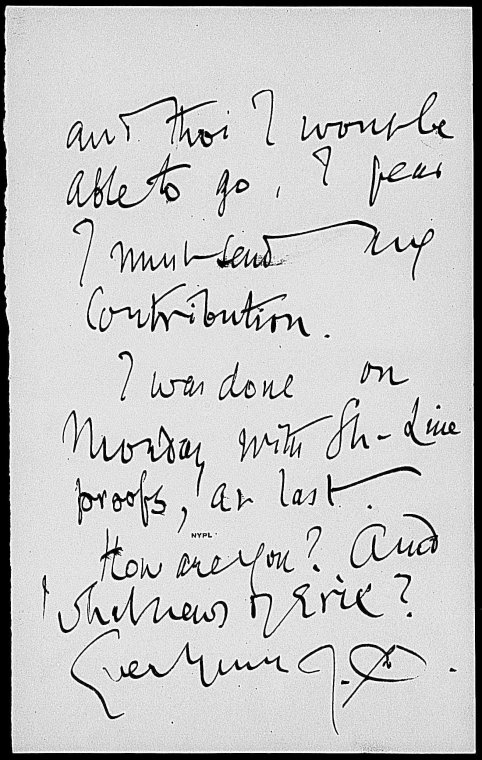 and tho' I wont be
able to go, I fear
I must send my
Contribution.
I was done on
Monday with Sh-Line
proofs, at last.
NYPL
How are you? And
what news of Eric?
Ever Yours J.C.